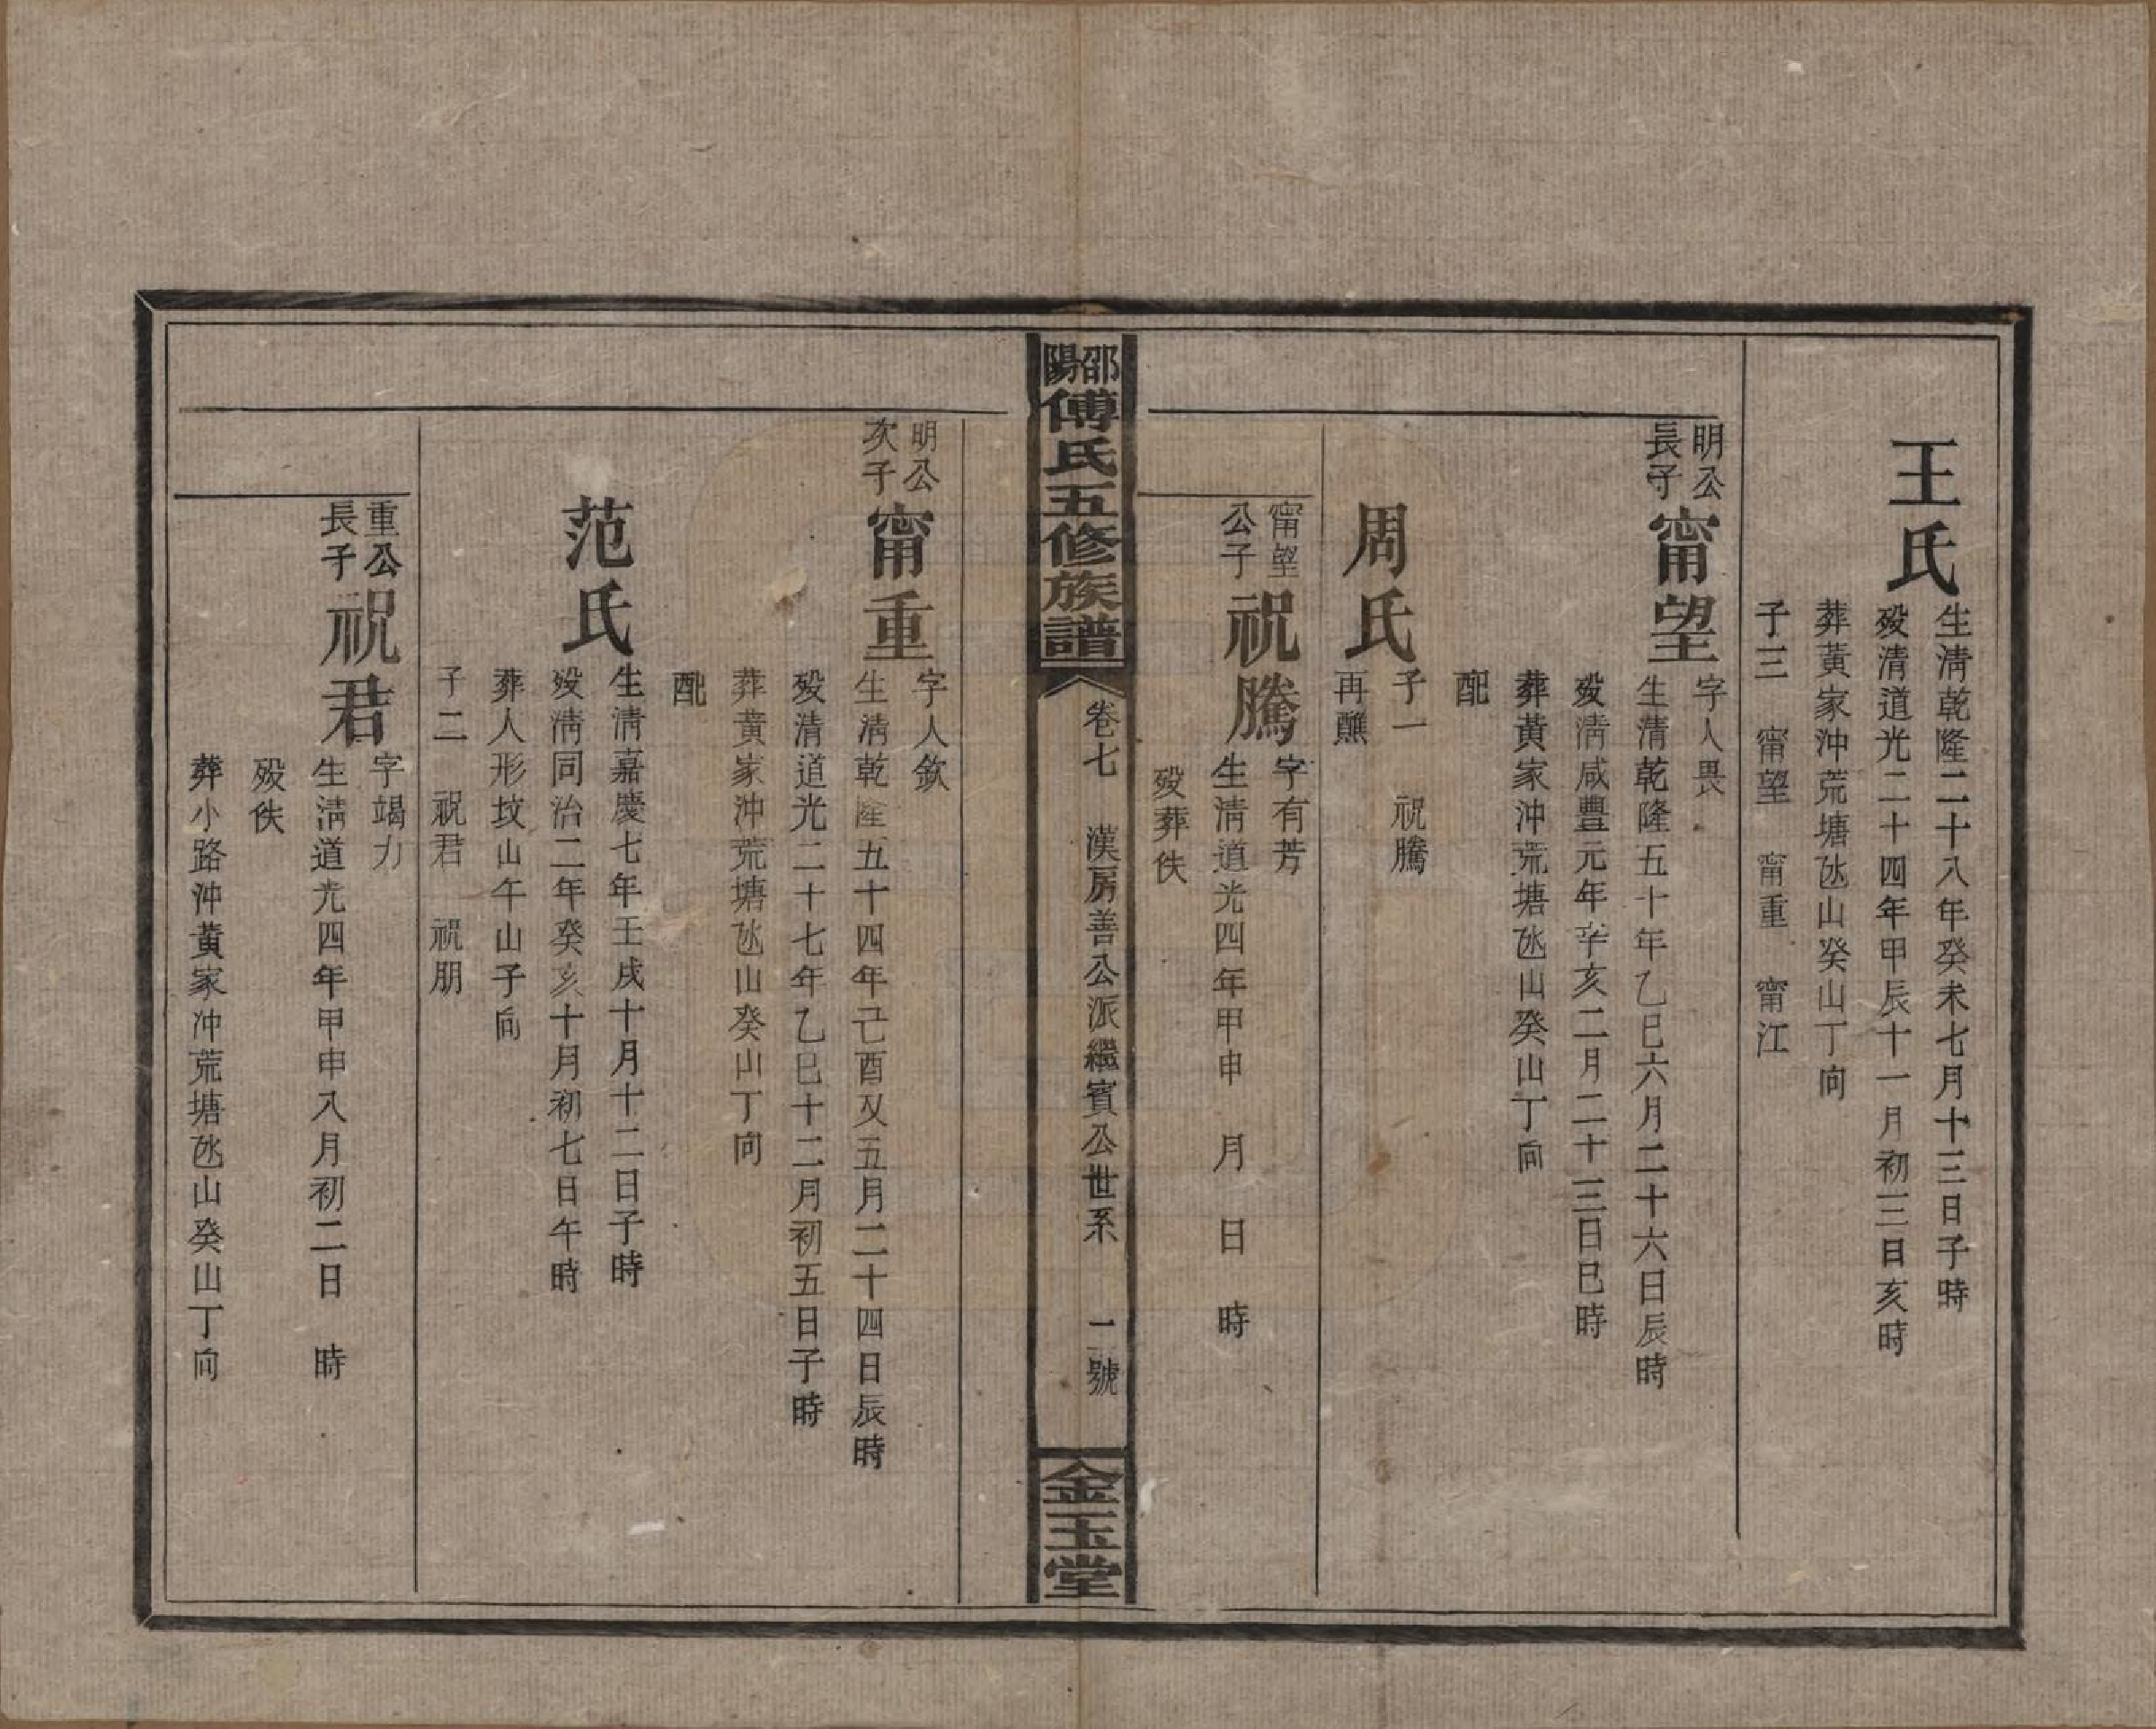 王氏
生清乾隆二十八年癸未七月十三日子時
殁清道光二十四年甲辰十一月初三日亥時
葬黃家沖荒塘氹山癸山丁向
子三　甯望　甯重　甯江
明公
長子
甯望
字人畏
生清乾隆五十年乙巳六月二十六日辰時
殁清咸豐元年辛亥二月二十三日巳時
葬黃家沖荒塘氹山癸山丁向
配
周氏
子一　祝騰
再醮
甯望
公子
祝騰
字有芳
生清道光四年甲申　月　日　時
殁葬佚
邵陽傅氏五修族譜
卷七　漢房善公派繼賓公世系　二號
金玉堂
明公
次子
甯重
字人欽
生清乾隆五十四年己酉又五月二十四日辰時
殁清道光二十七年乙巳十二月初五日子時
葬黃家沖荒塘氹山癸山丁向
配
范氏
生清嘉慶七年壬戌十月十二日子時
殁清同治二年癸亥十月初七日午時
葬人形坟山午山子向
子二　祝君　祝朋
重公
長子
祝君
字竭力
生清道光四年甲申八月初二日　時
殁佚
葬小路沖黃家冲荒塘氹山癸山丁向